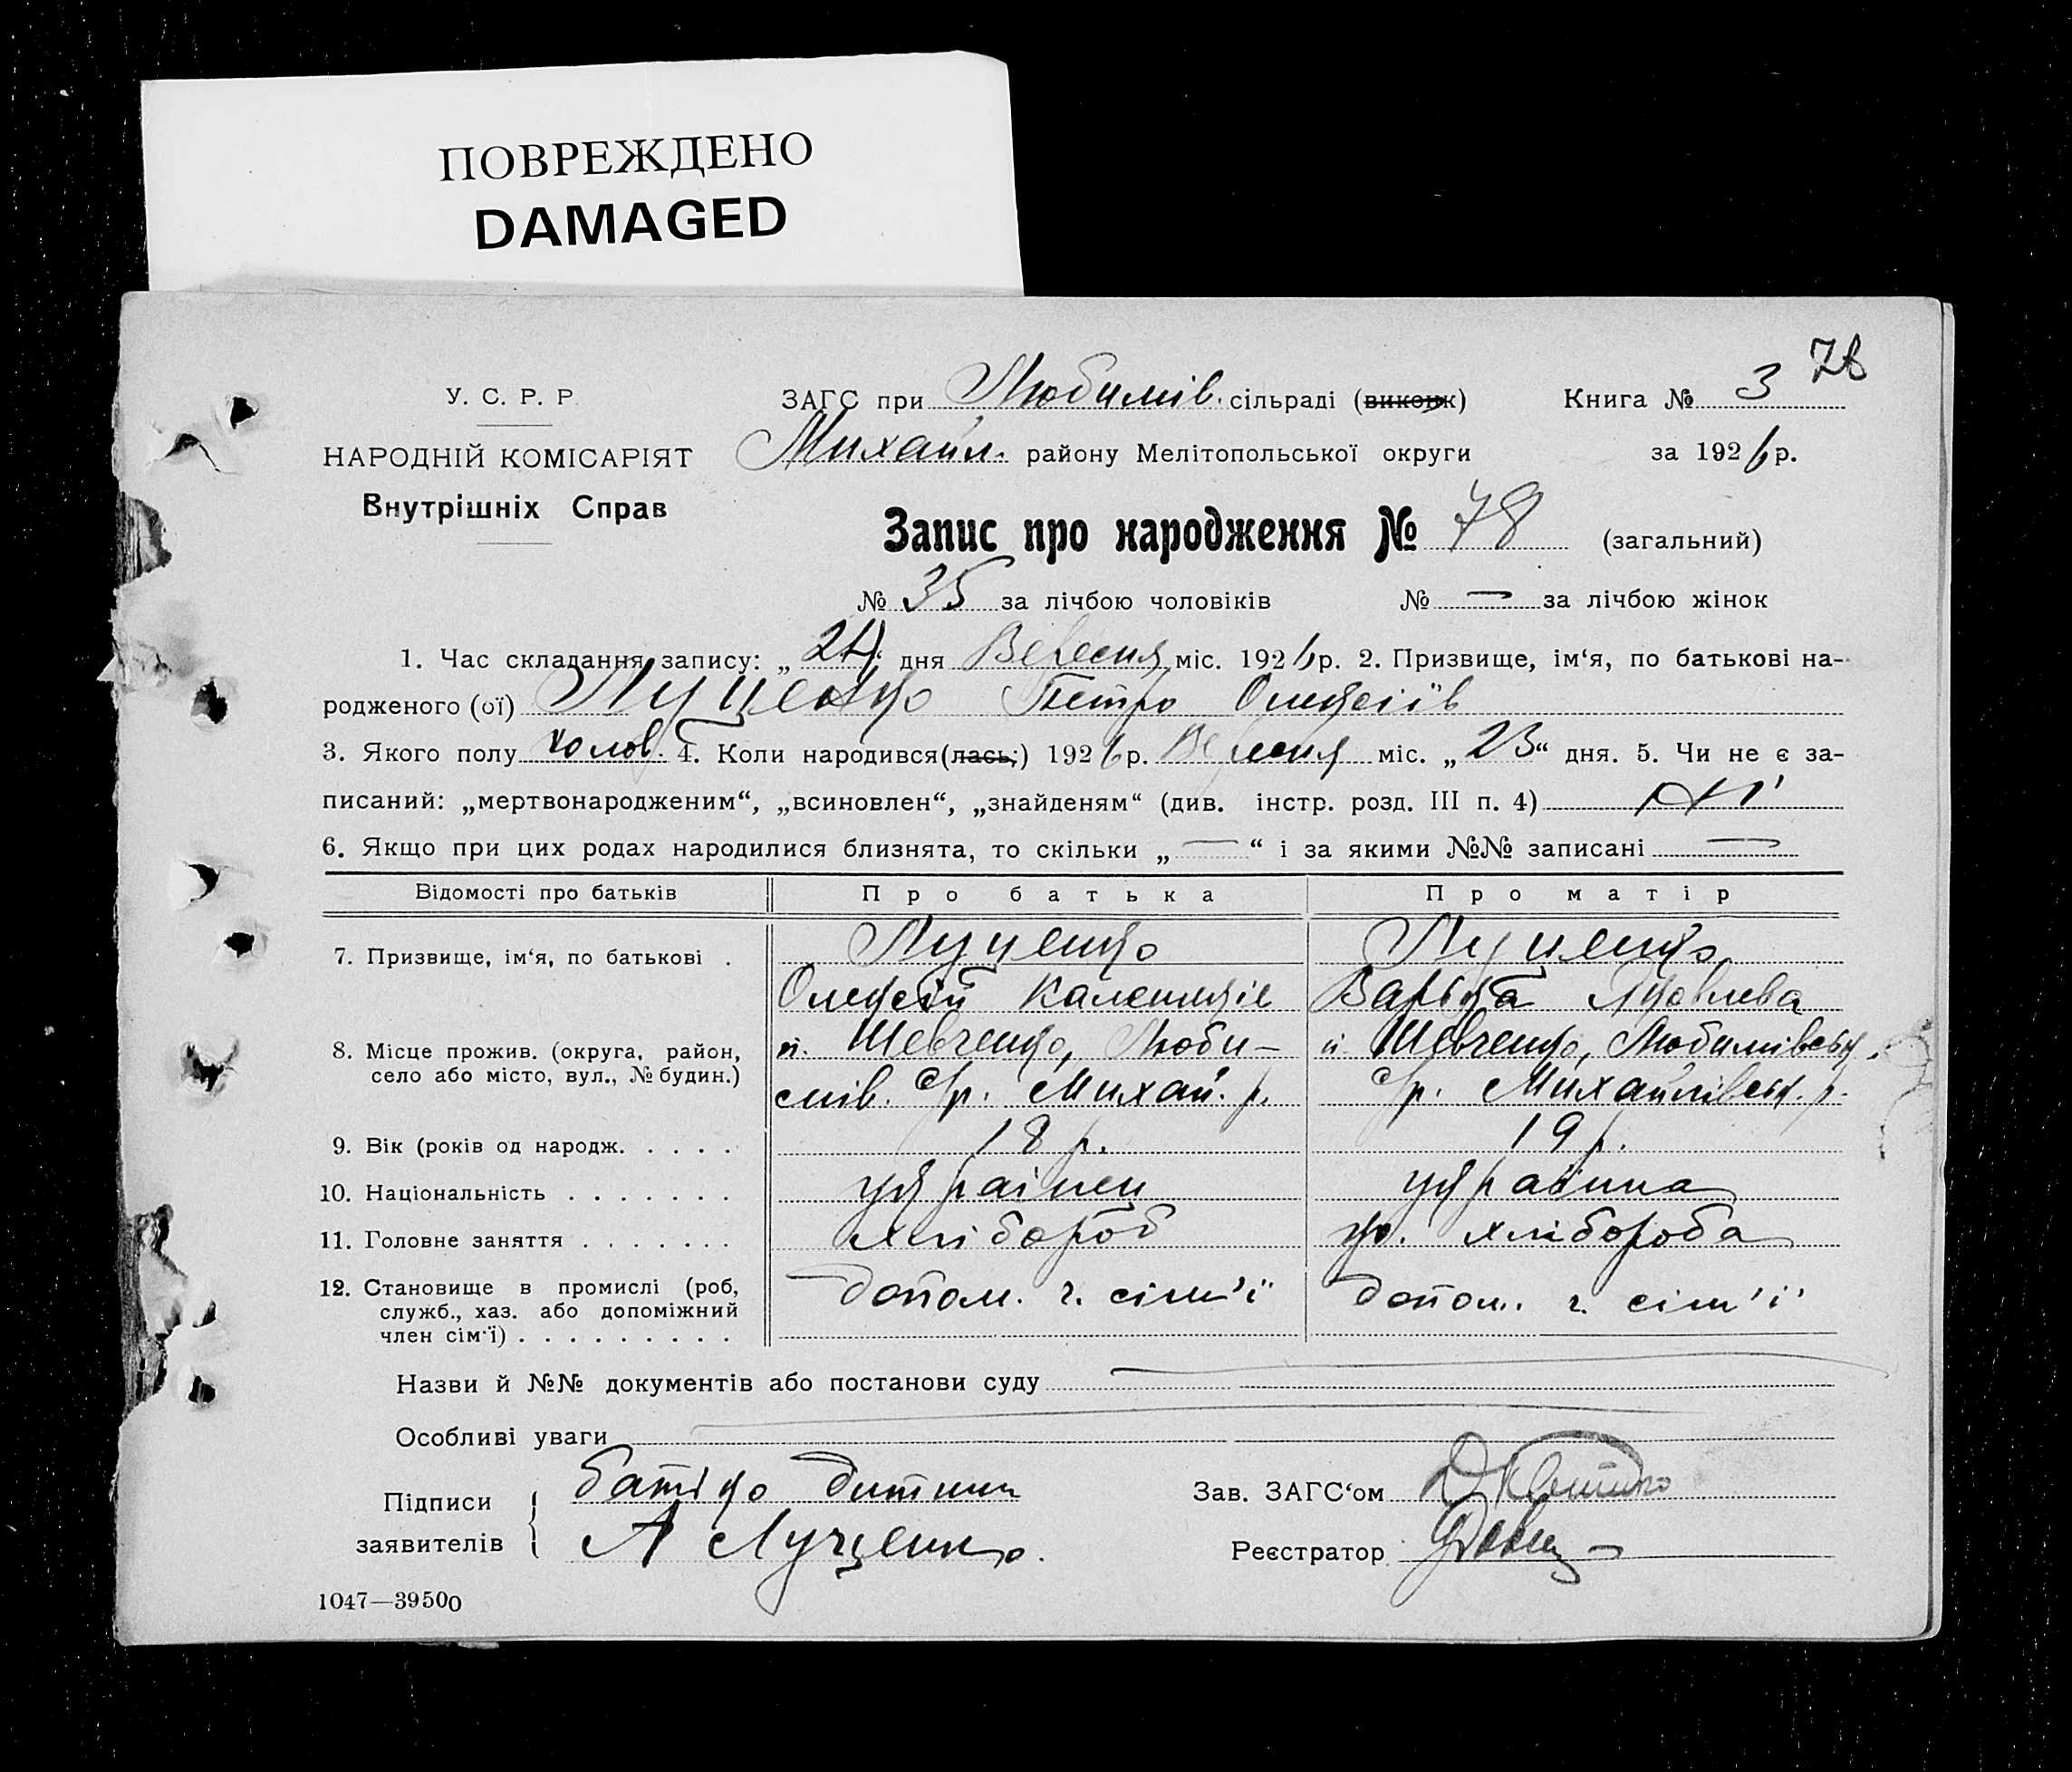 ПОВРЕЖДЕНО
DAMAGED
78
У. С. Р. Р
ЗАГС при Любимів. сільраді (виконк)
Книга № 3
НАРОДНІЙ КОМІСАРІЯТ
Михайл. району Мелітопольської округи
за 1926 р.
Внутрішніх Справ
Запис про народження № 78 (загальний)
№ 35 за лічбою чоловіків № — за лічбою жінок
1. Час складання запису: „24“ дня Вересня міс. 1926 р. 2. Призвище, ім‘я, по батькові на-
родженого (ої) Луценко Петро Олексіїв
3. Якого полу чолов. 4. Коли народився(лась;) 1926 р. Вересня міс. „23“ дня. 5. Чи не є за-
писаний: „мертвонародженим“, „всиновлен“, „знайденям“ (див. інстр. розд. III п. 4) ні
6. Якщо при цих родах народилися близнята, то скільки „—“ і за якими №№ записані —
Відомості про батьків Про батька Про матір
7. Призвище, ім‘я, по батькові . Луценко Луценко
Олексій Варька Яковлева
8. Місце прожив. (округа, район, п. Шевченко, Люби- п. Шевченко, Любимівськ.
село або місто, вул., № будин.) мів. с/р. Михай. р. с/р. Михайлівськ. р.
9. Вік (років од народж. . . . . 18 р. 19 р.
10. Національність . . . . . . . українец українка
11. Головне заняття . . . . . . . хлібороб хлібороба
12. Становище в промислі (роб, допом. ч. сім'ї допом. ч. сім'ї
служб., хаз. або допоміжний
член сім‘ї) . . . . . . . . .
Назви й №№ документів або постанови суду —
Особливі уваги
Підписи батько дитини
Зав. ЗАГС‘ом
заявителів А Лученко.
Реєстратор
1047—39500